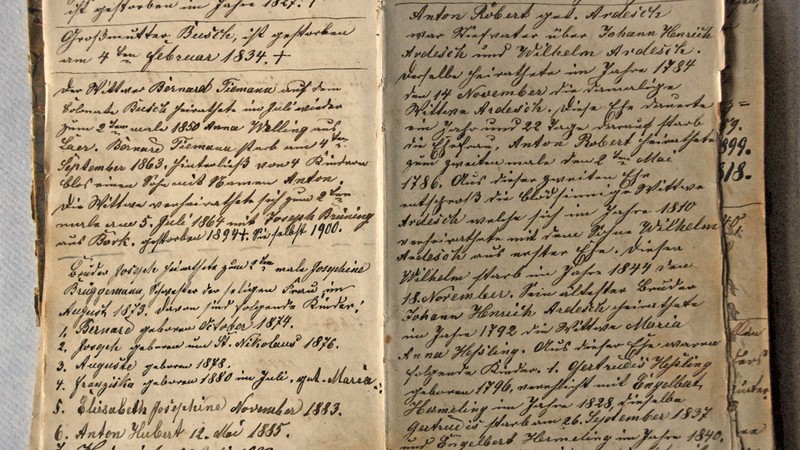 ist gestorben im Jahre 1827. †
Großmutter Busch, ist gestorben
am 4ten Februar 1834. +
Der Wittwer Bernard Tiemann auf dem
Colonate Busch heirathete im Juli wieder
zum 2ten male 1850 Anna Welling aus
Laer. Bernard Tiemann starb am 4ten
September 1863. hinterließ von 4 Kindern
blos einen Sohn mit Namen Anton.
Die Wittwe verheirathete sich zum 2ten
male am 5. Juli 1864 mit Joseph Brüning
aus Bork. gestorben 1894+. Sie selbst 1900.
Bruder Joseph heirathete zum 2ten male Josephine
Brüggemann Schwester der seligen Frau im
August 1873. davon sind folgende Kinder:
1. Bernard geboren October 1874.
2. Joseph geboren um St. Nikolaus 1876.
3. Auguste geboren 1878.
4. Franziska geboren 1880 im Juli. gt. Maria.
5. Elisabeth Josephine November 1883.
6. Anton Hubert 12. Mai 1885.
Anton Robert gt. Ardesch
war Stiefvater über Johann Henrich
Ardesch und Wilhelm Ardesch.
Derselbe heirathete im Jahre 1784
den 14 November die damalige
Wittwe Ardesch. Diese Ehe dauerte
ein Jahr und 22 Tage darauf starb
die Ehefrau. Anton Robert heirathete
zum zweiten male den 2ten Mai
1786. Aus dieser zweiten Ehe
entsproß die blödsinnige Wittwe
Ardesch welche sich im Jahre 1810
verheirathete mit dem Sohne Wilhelm
Ardesch aus erster Ehe. Dieser
Wilhelm starb im Jahre 1844 den
18. November. Sein ältester Bruder
Johann Henrich Ardesch heirathete
im Jahre 1792 die Wittwe Maria
Anna Heßling. Aus dieser Ehe waren
folgende Kinder. 1. Gertrudis Heßling
geboren 1796, verehlicht mit Engelbert
Hermeling im Jahre 1828, dieselbe
Gertrudis starb am 26. September 1837
und Engelbert Hermeling im Jahre 1840.
1899.
1818.